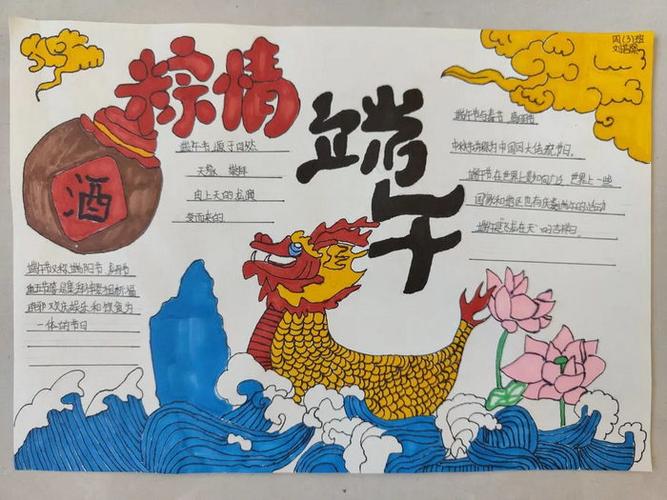 四(3)班
粽情
端午
酒
端午节,源于自然
天象 崇拜
由上天的龙演
变而来的
端午节与春节
中秋节并称为中国四大传统节日。
端午节在世界上影响广泛 世界上一些
国家和地区也有庆贺端午的活动
端午是"飞龙在天"的吉祥日。
端午节又称端阳节
重五节等是集拜神祭祖祈福
辟邪 欢庆娱乐 和 饮食为
一体的节日